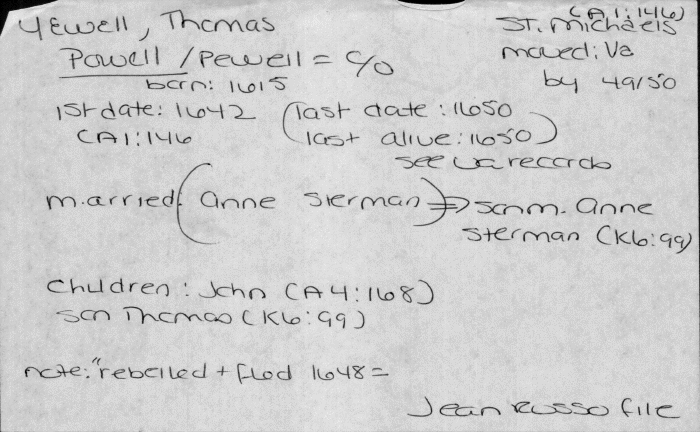 Yewell, Thomas
(CA1:146)
St. Michaels
Powell / Pewell = c/o
moved: Va
born: 1615
by 49/50
1st date: 1642 (last date: 1650
CA1:146 last alive: 1650)
see va records
married: (Anne Sterman) => son m. Anne
Sterman (K6:99)
Children: John (A4:168)
son Thomas (K6:99)
note: "rebelled + fled 1648 =
Jean Russo file